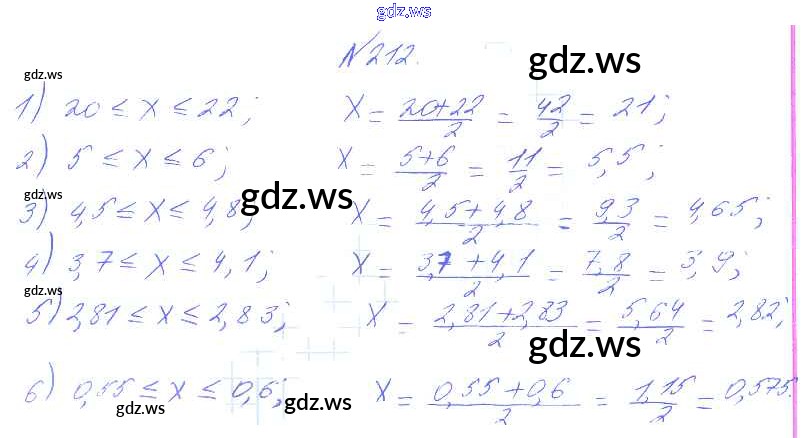 gdz.ws
№212.
gdz.ws gdz.ws
1) 20 ≤ x ≤ 22; x = (20+22)/2 = 42/2 = 21;
gdz.ws
2) 5 ≤ x ≤ 6; x = (5+6)/2 = 11/2 = 5,5;
gdz.ws gdz.ws
3) 4,5 ≤ x ≤ 4,8; x = (4,5+4,8)/2 = 9,3/2 = 4,65;
4) 3,7 ≤ x ≤ 4,1; x = (3,7+4,1)/2 = 7,8/2 = 3,9;
gdz.ws
5) 2,81 ≤ x ≤ 2,83; x = (2,81+2,83)/2 = 5,64/2 = 2,82;
gdz.ws
6) 0,55 ≤ x ≤ 0,6; x = (0,55+0,6)/2 = 1,15/2 = 0,575.
gdz.ws gdz.ws